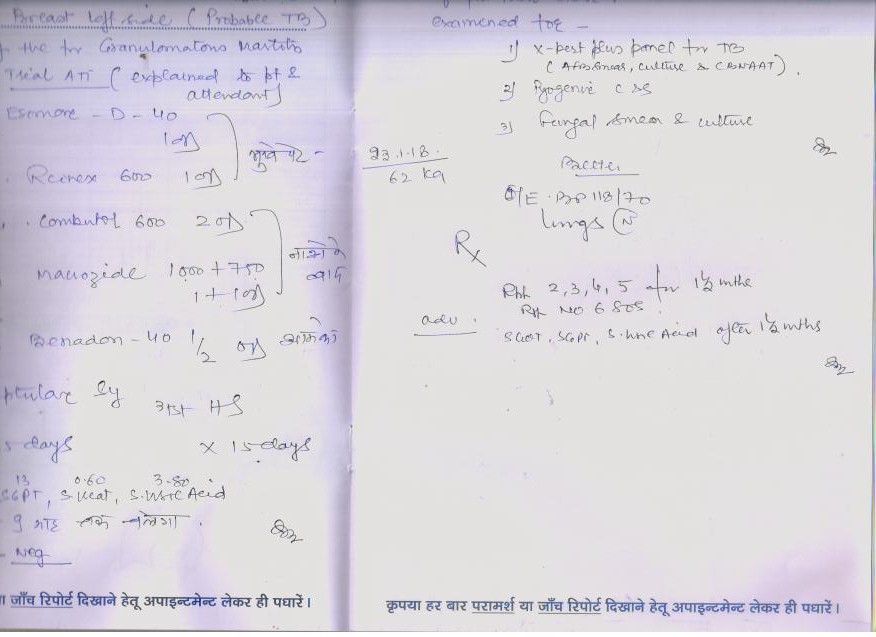 Breast left side (Probable TB)
the for Granulomatous Mastitis
Trial ATT (explained to pt &
attendant)
Esomore - D - 40
1 OD
Rcinex 600 1 OD
भूखे पेट -
Combutol 600 2 OD
Macrozide 1000 + 750
1 + 1 OD
नाश्ते के
बाद
Benadon - 40 1/2 OD
Sy
HS
5 days x 15 days
13 0.60 3.80
SGPT, S. Uric Acid
9 माह तक चलेगा.
Neg
जाँच रिपोर्ट दिखाने हेतू अपाइन्टमेन्ट लेकर ही पधारें।
examened for -
1) x-pert plus panel for TB
(AFB smear, culture & CBNAAT).
2) Pyogenic C &S
3) Fungal smear & culture
23.1.18.
62 Kg
O/E. BP 118/70
Lungs (N)
Rx
Rpt 2, 3, 4, 5 for 1½ mths
Rpt NO 6 SOS.
adv.
SGOT, SGPT, S. Uric Acid after 1½ mths
कृपया हर बार परामर्श या जाँच रिपोर्ट दिखाने हेतू अपाइन्टमेन्ट लेकर ही पधारें।